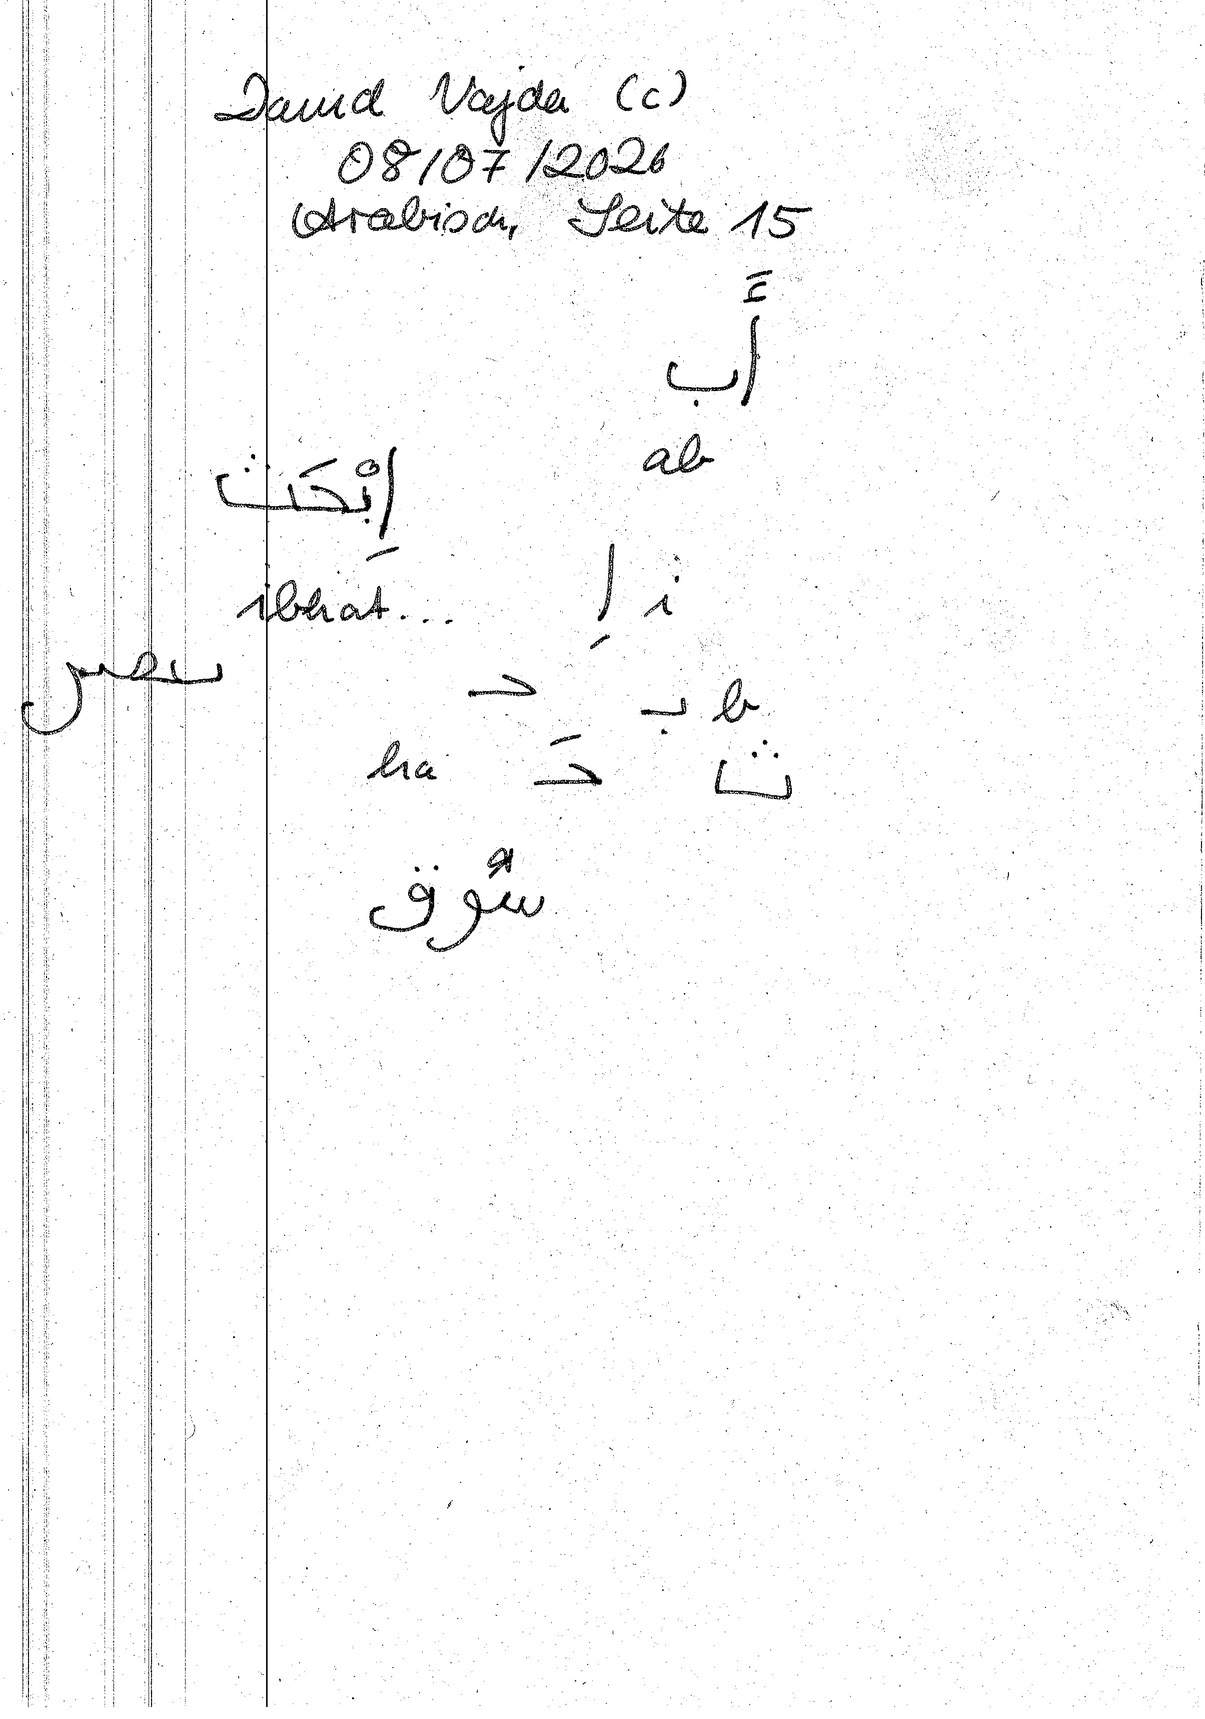 David Vajda (c)
08/07/2026
Arabisch, Seite 15
أَب
ab
اِبْحَث
ibhat...
اِ i
حـ
بـ b
ha حَـ ث
سُوق